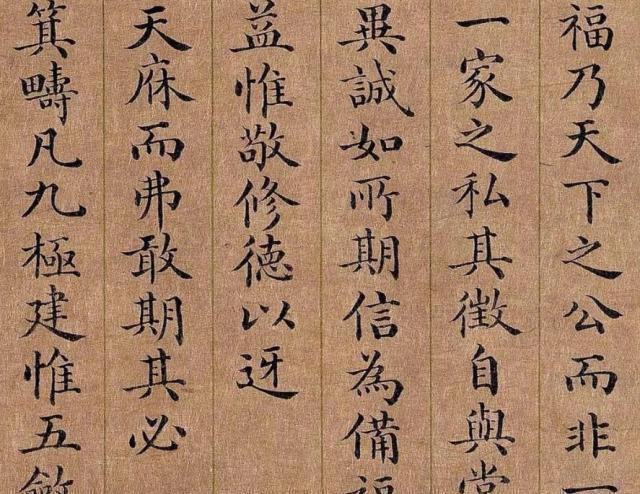 福乃天下之公而非一
一家之私其徵自與常
異誠如所期信為備福
益惟敬修德以迓
天庥而弗敢期其必
箕疇凡九極建惟五斂